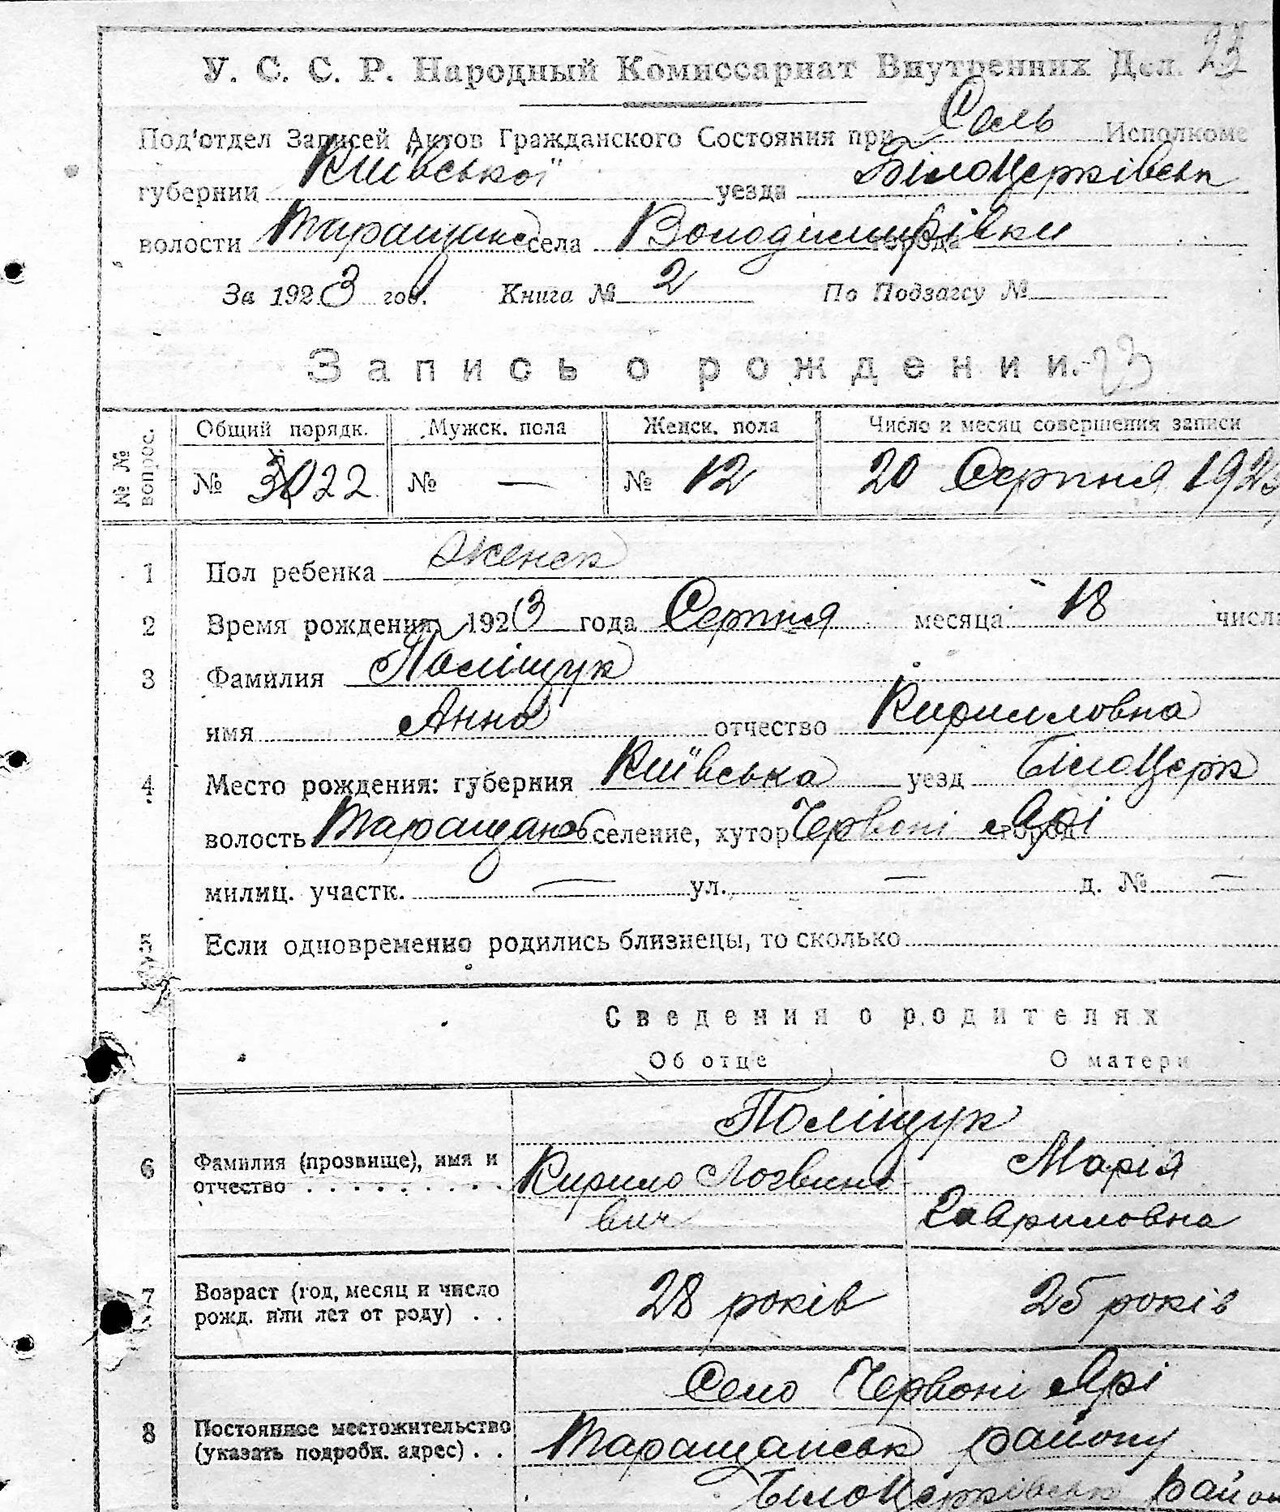 23
У. С. С. Р. Народный Комиссариат Внутренних Дел.
Под'отдел Записей Актов Гражданского Состояния при Сель Исполкоме
губернии Київської уезда Білоцерківськ
волости Таращанс села Володимирівки города
За 1923 год. Книга № 2 По Подзагсу №
Запись о рождении. 23
№ № вопрос. Общий порядк. Мужск. пола Женск. пола Число и месяц совершения записи
№ 22 № — № 12 20 Серпня 1923
1 Пол ребенка женск
2 Время рождения: 1923 года Серпня месяца 18 числ
3 Фамилия Поліщук
имя Анна отчество Кирилловна
4 Место рождения: губерния Київська уезд Білоцерк
волость Таращансь селение, хутор Червоні Ярі город
милиц. участк. — ул. — д. № —
5 Если одновременно родились близнецы, то сколько
Сведения о родителях
Об отце О матери
Поліщук
6 Фамилия (прозвище), имя и отчество . . . . . . . . . Кирило Логвино Марія
вич Гавриловна
7 Возраст (год, месяц и число рожд. или лет от роду) . . 28 років 25 років
Село Червоні Ярі
8 Постоянное местожительство (указать подробн. адрес) . . Таращанськ району
Білоцерківськ район